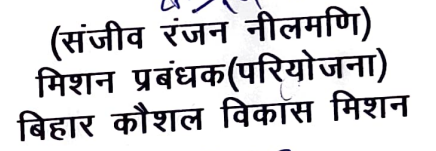 (संजीव रंजन नीलमणि)
मिशन प्रबंधक(परियोजना)
बिहार कौशल विकास मिशन